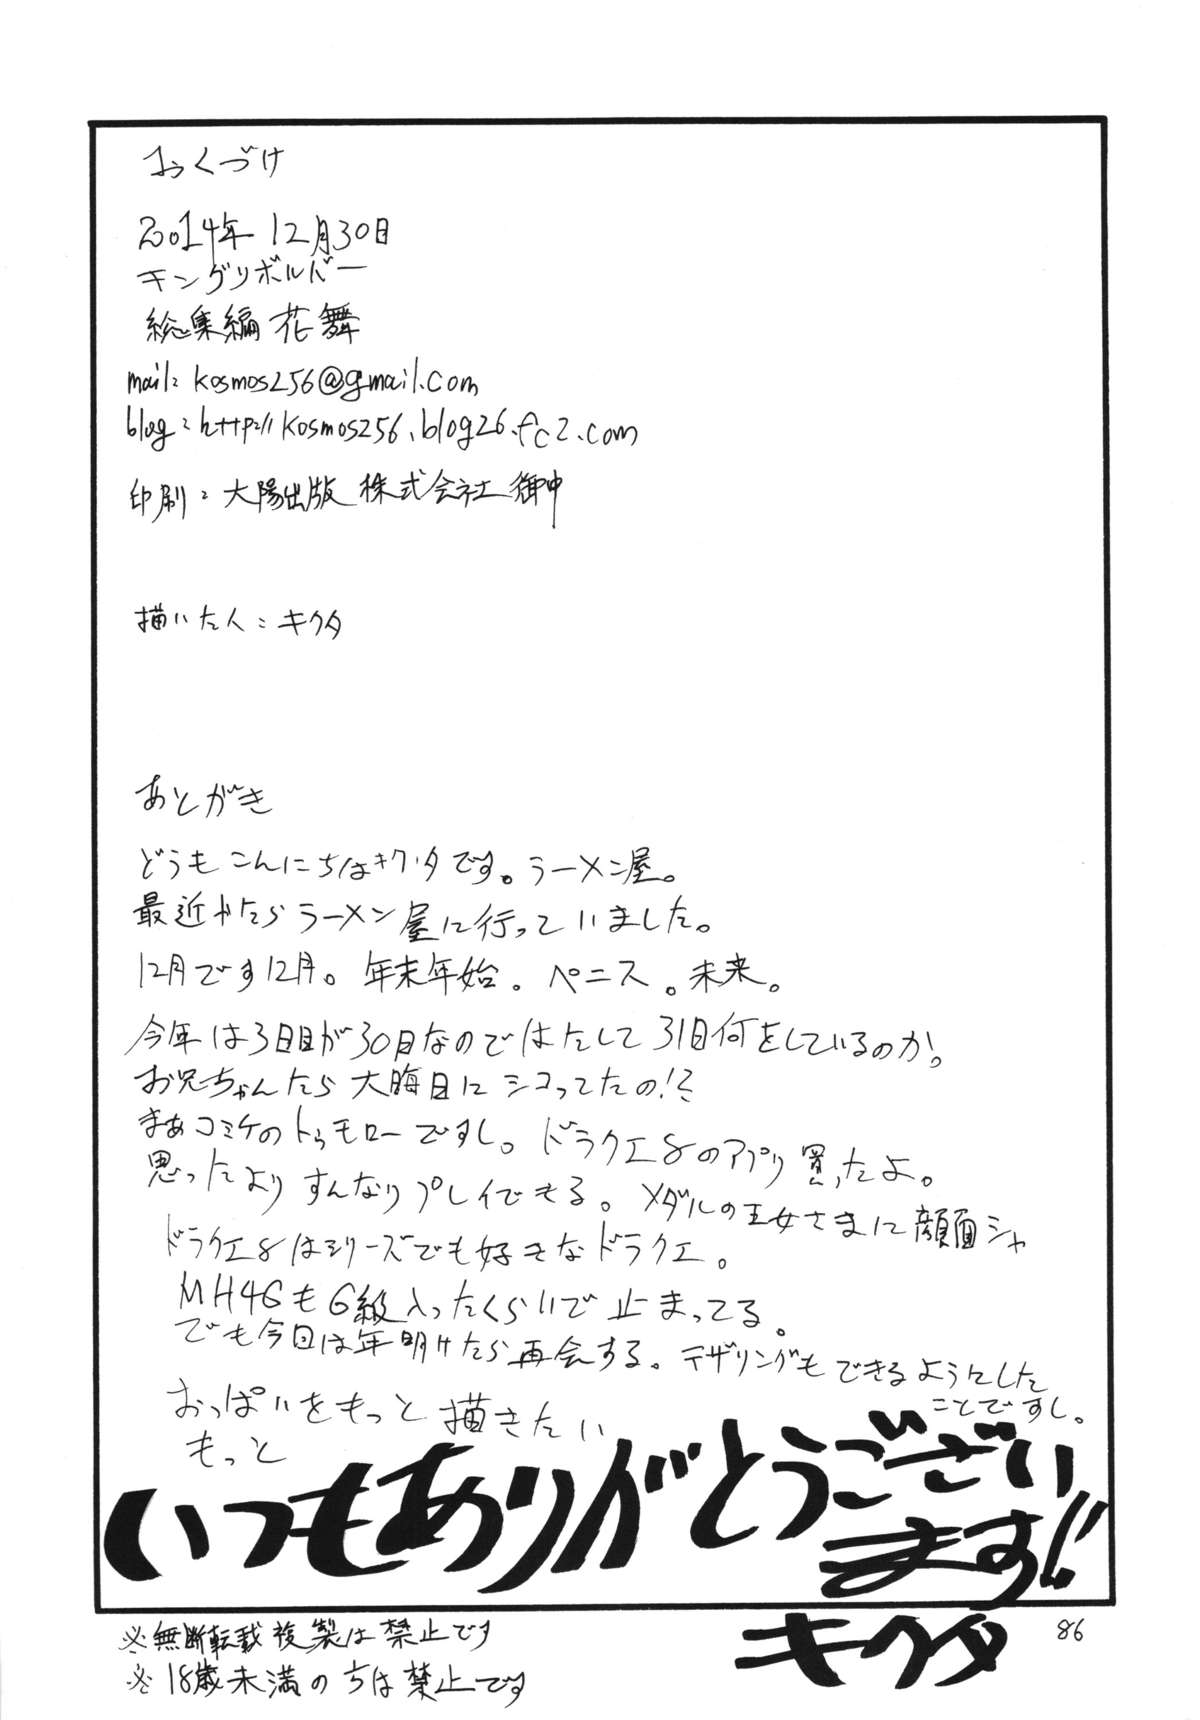 おくづけ
2014年12月30日
キングリボルバー
総集編 花舞
mail: kosmos256@gmail.com
blog: http://kosmos256.blog26.fc2.com
印刷: 大陽出版 株式会社 御中
描いた人: キクタ
あとがき
どうもこんにちはキクタです。ラーメン屋。
最近やたらラーメン屋に行っていました。
12月です12月。年末年始。ペニス。未来。
今年は3日目が30日なのではたして31日何をしているのか。
お兄ちゃんたら大晦日にシコってたの!?
まぁコミケのトゥモローですし。ドラクエ8のアプリ買ったよ。
思ったよりすんなりプレイできる。メダルの王女さまに顔面シャ
ドラクエ8はシリーズでも好きなドラクエ。
MH4GもG級入ったくらいで止まってる。
でも今回は年明けたら再会する。テザリングもできるようにした
ことですし。
おっぱいをもっと描きたい
もっと
いつもありがとうござい
ます!!
キクタ
※無断転載複製は禁止です
※18歳未満のちは禁止です
86